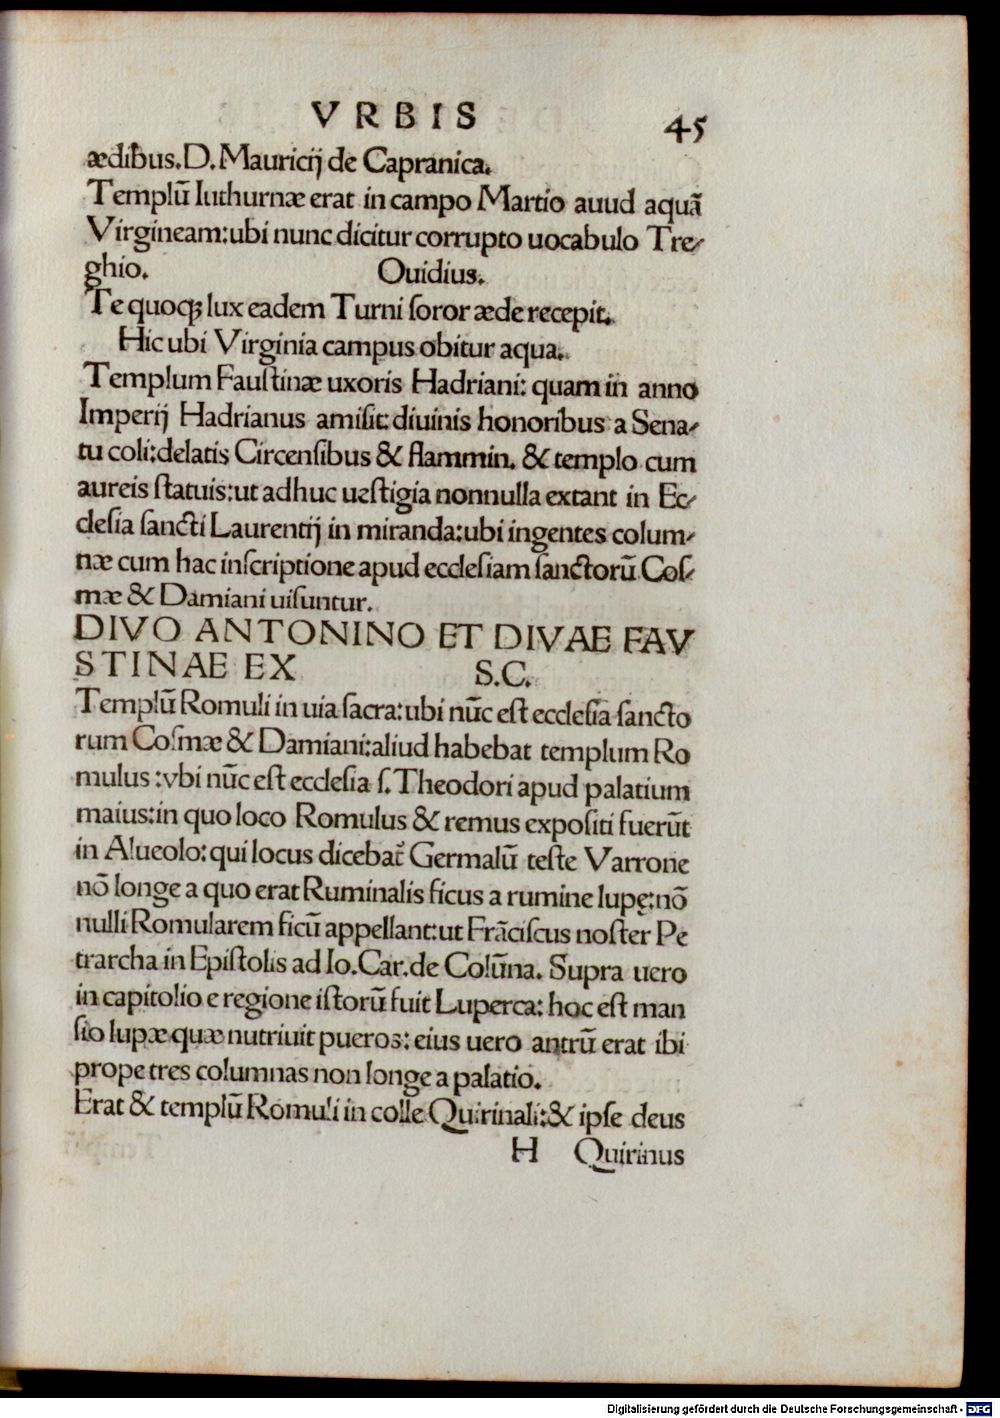 VRBIS 45
ædibus.D.Mauricij de Capranica.
Templū Iuthurnæ erat in campo Martio auud aquā
Virgineam:ubi nunc dicitur corrupto uocabulo Tre-
ghio. Ouidius.
Te quoqꝫ lux eadem Turni ſoror æde recepit.
Hic ubi Virginia campus obitur aqua.
Templum Fauſtinæ uxoris Hadriani: quam in anno
Imperij Hadrianus amiſit:diuinis honoribus a Sena-
tu coli:delatis Circenſibus & flammin. & templo cum
aureis ſtatuis:ut adhuc ueſtigia nonnulla extant in Ec-
cleſia ſancti Laurentij in miranda:ubi ingentes colum-
næ cum hac inſcriptione apud eccleſiam ſanctorū Coſ-
mæ & Damiani uiſuntur.
DIVO ANTONINO ET DIVAE FAV
STINAE EX S.C.
Templū Romuli in uia ſacra:ubi nūc eſt eccleſia ſancto
rum Coſmæ & Damiani:aliud habebat templum Ro
mulus :vbi nūc eſt eccleſia ſ.Theodori apud palatium
maius:in quo loco Romulus & remus expoſiti fuerūt
in Alueolo:qui locus dicebat᷑ Germalū teſte Varrone
nō longe a quo erat Ruminalis ficus a rumine lupę:nō
nulli Romularem ficū appellant:ut Frāciſcus noſter Pe
trarcha in Epiſtolis ad Io.Car.de Colūna. Supra uero
in capitolio e regione iſtorū fuit Luperca: hoc eſt man
ſio lupæ quæ nutriuit pueros: eius uero antrū erat ibi
prope tres columnas non longe a palatio.
Erat & templū Romuli in colle Quirinali:& ipſe deus
H Quirinus
Digitalisierung gefördert durch die Deutsche Forschungsgemeinschaft - DFG